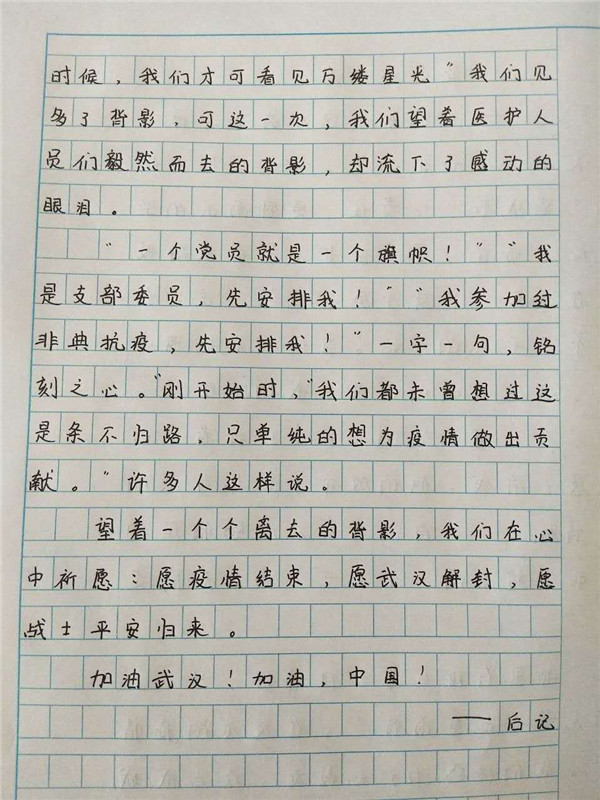 时候，我们才可看见万缕星光”我们见
多了背影，可这一次，我们望着医护人
员们毅然而去的背影，却流下了感动的
眼泪。
“一个党员就是一个旗帜！”“我
是支部委员，先安排我！”“我参加过
非典抗疫，先安排我！”一字一句，铭
刻之心。“刚开始时，“我们都未曾想过这
是条不归路，只单纯的想为疫情做出贡
献。”许多人这样说。
望着一个个离去的背影，我们在心
中祈愿：愿疫情结束，愿武汉解封，愿
战士平安归来。
加油武汉！加油，中国！
——后记